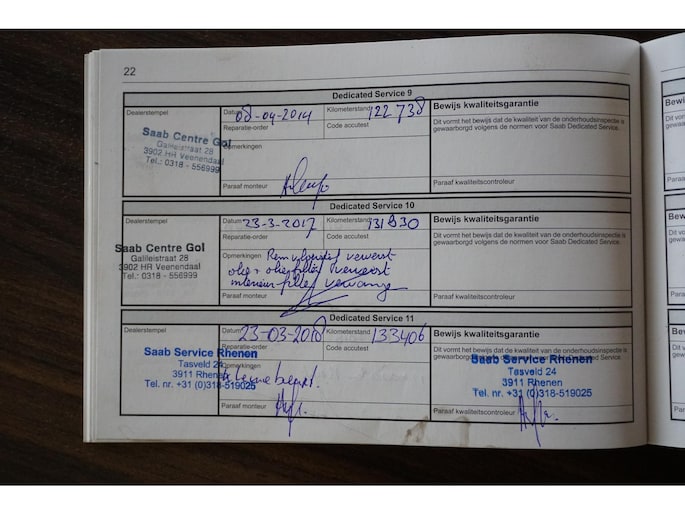 22
Dedicated Service 9
Dealerstempel
Datum 08-04-2014
Kilometerstand 122 738
Bewijs kwaliteitsgarantie
Reparatie-order
Code accutest
Dit vormt het bewijs dat de kwaliteit van de onderhoudsinspectie is
gewaarborgd volgens de normen voor Saab Dedicated Service.
Saab Centre Gol
Galileistraat 28
3902 HR Veenendaal
Tel.: 0318 - 556999
Opmerkingen
Paraaf monteur
Paraaf kwaliteitscontroleur
Dedicated Service 10
Dealerstempel
Datum 23-3-2017
Kilometerstand
Bewijs kwaliteitsgarantie
Reparatie-order
Code accutest
Dit vormt het bewijs dat de kwaliteit van de onderhoudsinspectie is
gewaarborgd volgens de normen voor Saab Dedicated Service.
Saab Centre Gol
Galileistraat 28
3902 HR Veenendaal
Tel.: 0318 - 556999
Opmerkingen Remvloeistof ververst
olie + oliefilter ververst
interieur-filter
Paraaf monteur
Paraaf kwaliteitscontroleur
Dedicated Service 11
Dealerstempel
Datum 23-03-2018
Kilometerstand 133406
Bewijs kwaliteitsgarantie
Reparatie-order
Code accutest
Dit vormt het bewijs dat de kwaliteit van de onderhoudsinspectie is
gewaarborgd
Saab Service Rhenen
Tasveld 24
3911 Rhenen
Tel. nr. +31 (0)318-519025
Opmerkingen
kleine beurt.
Saab Service Rhenen
Tasveld 24
3911 Rhenen
Tel. nr. +31 (0)318-519025
Paraaf monteur
Paraaf kwaliteitscontroleur